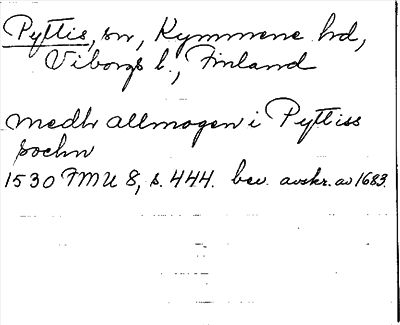 Pyttis, sn, Kymmene hd,
Viborgs l., Finland
medh allmogen i Pyttiss
sochn
1530 FMU 8, s. 444. bev. avskr. av 1683.